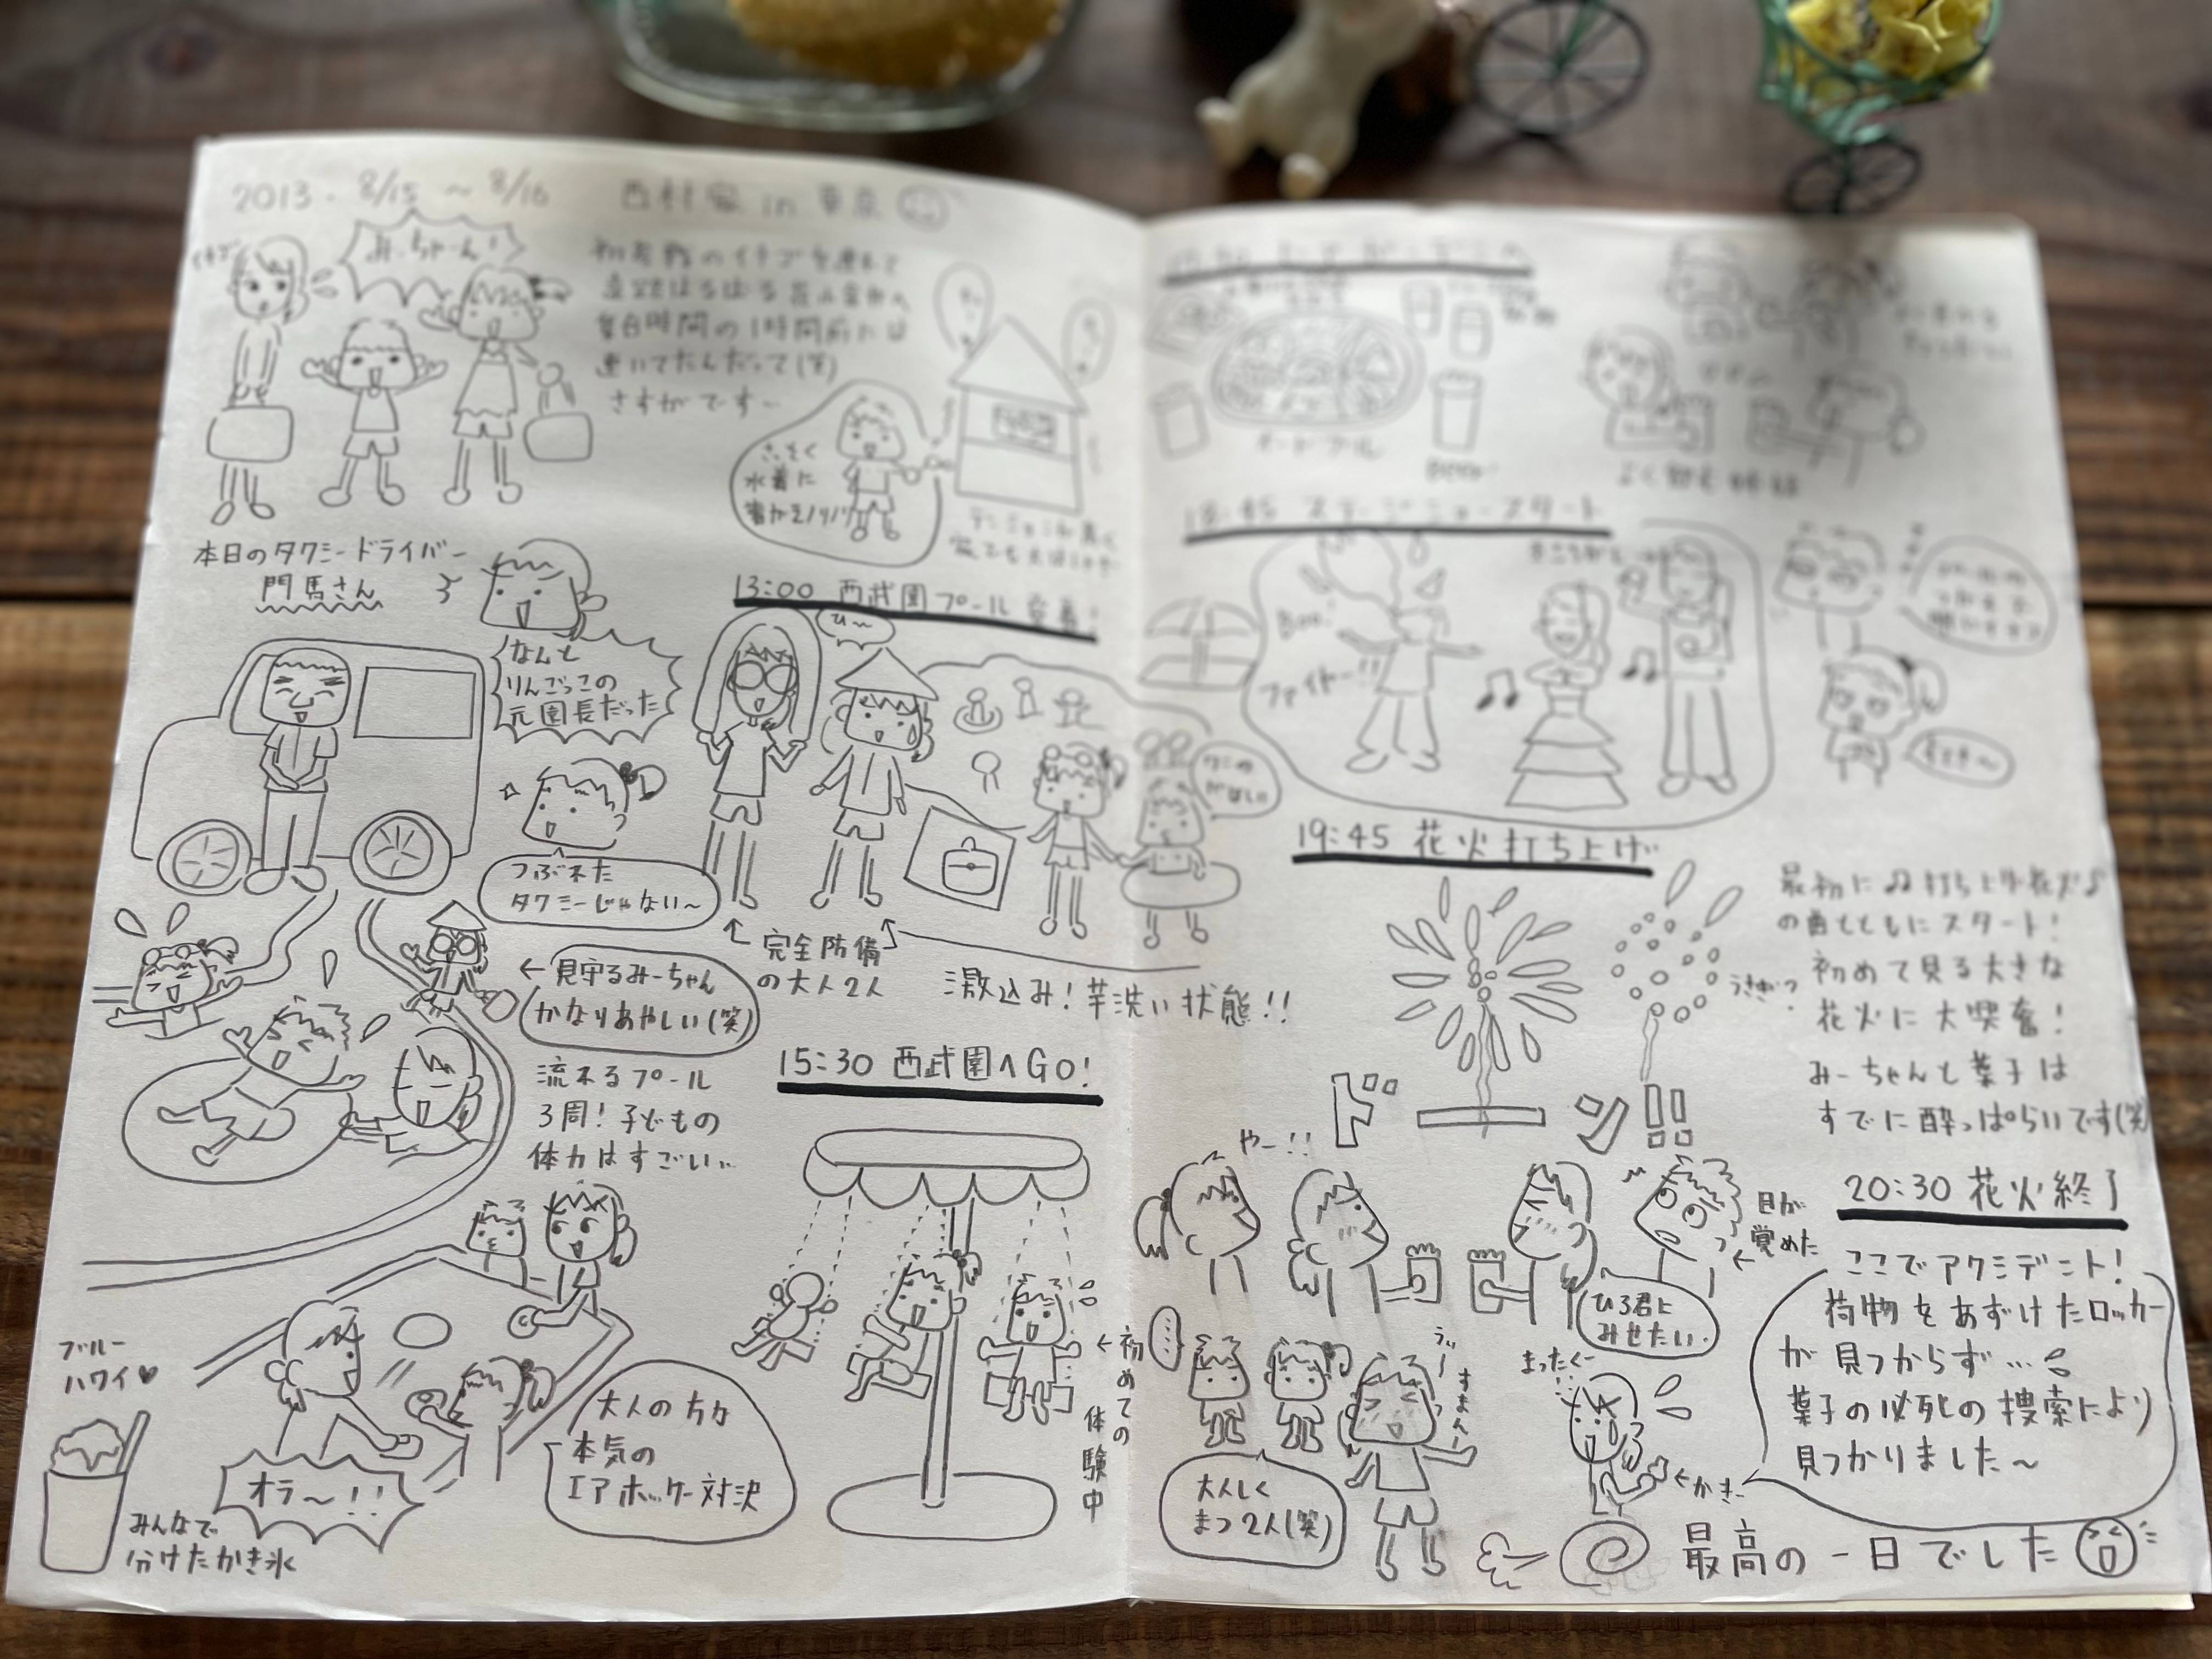 2013. 8/15 ~ 8/16 西村家 in 東京
イチゴ
みーちゃーん!
のイチゴを連れて
時間の1時間前には
着いてたんだって(笑)
さすがです~
さっそく
水着に
着がえノリノリ
本日のタクシードライバー
門馬さん
なんと
りんごっこの
元園長だった
つぶれた
タクシーじゃない~
13:00 西武園プール 到着!
ひ~
ワニの
がほしい
↑ 完全防備
の大人2人
激込み! 芋洗い状態!!
← 見守るみーちゃん
かなりあやしい(笑)
流れるプール
3周! 子どもの
体力はすごい..
15:30 西武園へGO!
← 初めての
体験中
大人の方が
本気の
エアホッケー対決
オラ~!!
ブルー
ハワイ♡
みんなで
分けたかき氷
オードブル
Beer
18:45 ステージショースタート
Boo!
ファイヤー!!
19:45 花火打ち上げ
最初に♫打ち上げ花火♪
の曲とともにスタート!
初めて見る大きな
花火に大興奮!
みーちゃんと葉子は
すでに酔っぱらいです(笑)
うさぎ?
ドーン!!
やー!!
目が
覚めた
ひろ君に
みせたい..
20:30 花火終了
ここでアクシデント!
荷物をあずけたロッカー
が見つからず…
葉子の必死の捜索により
見つかりました~
まったくー
←かぎ
うぃーっ
すまん!
大人しく
まつ2人(笑)
最高の一日でした